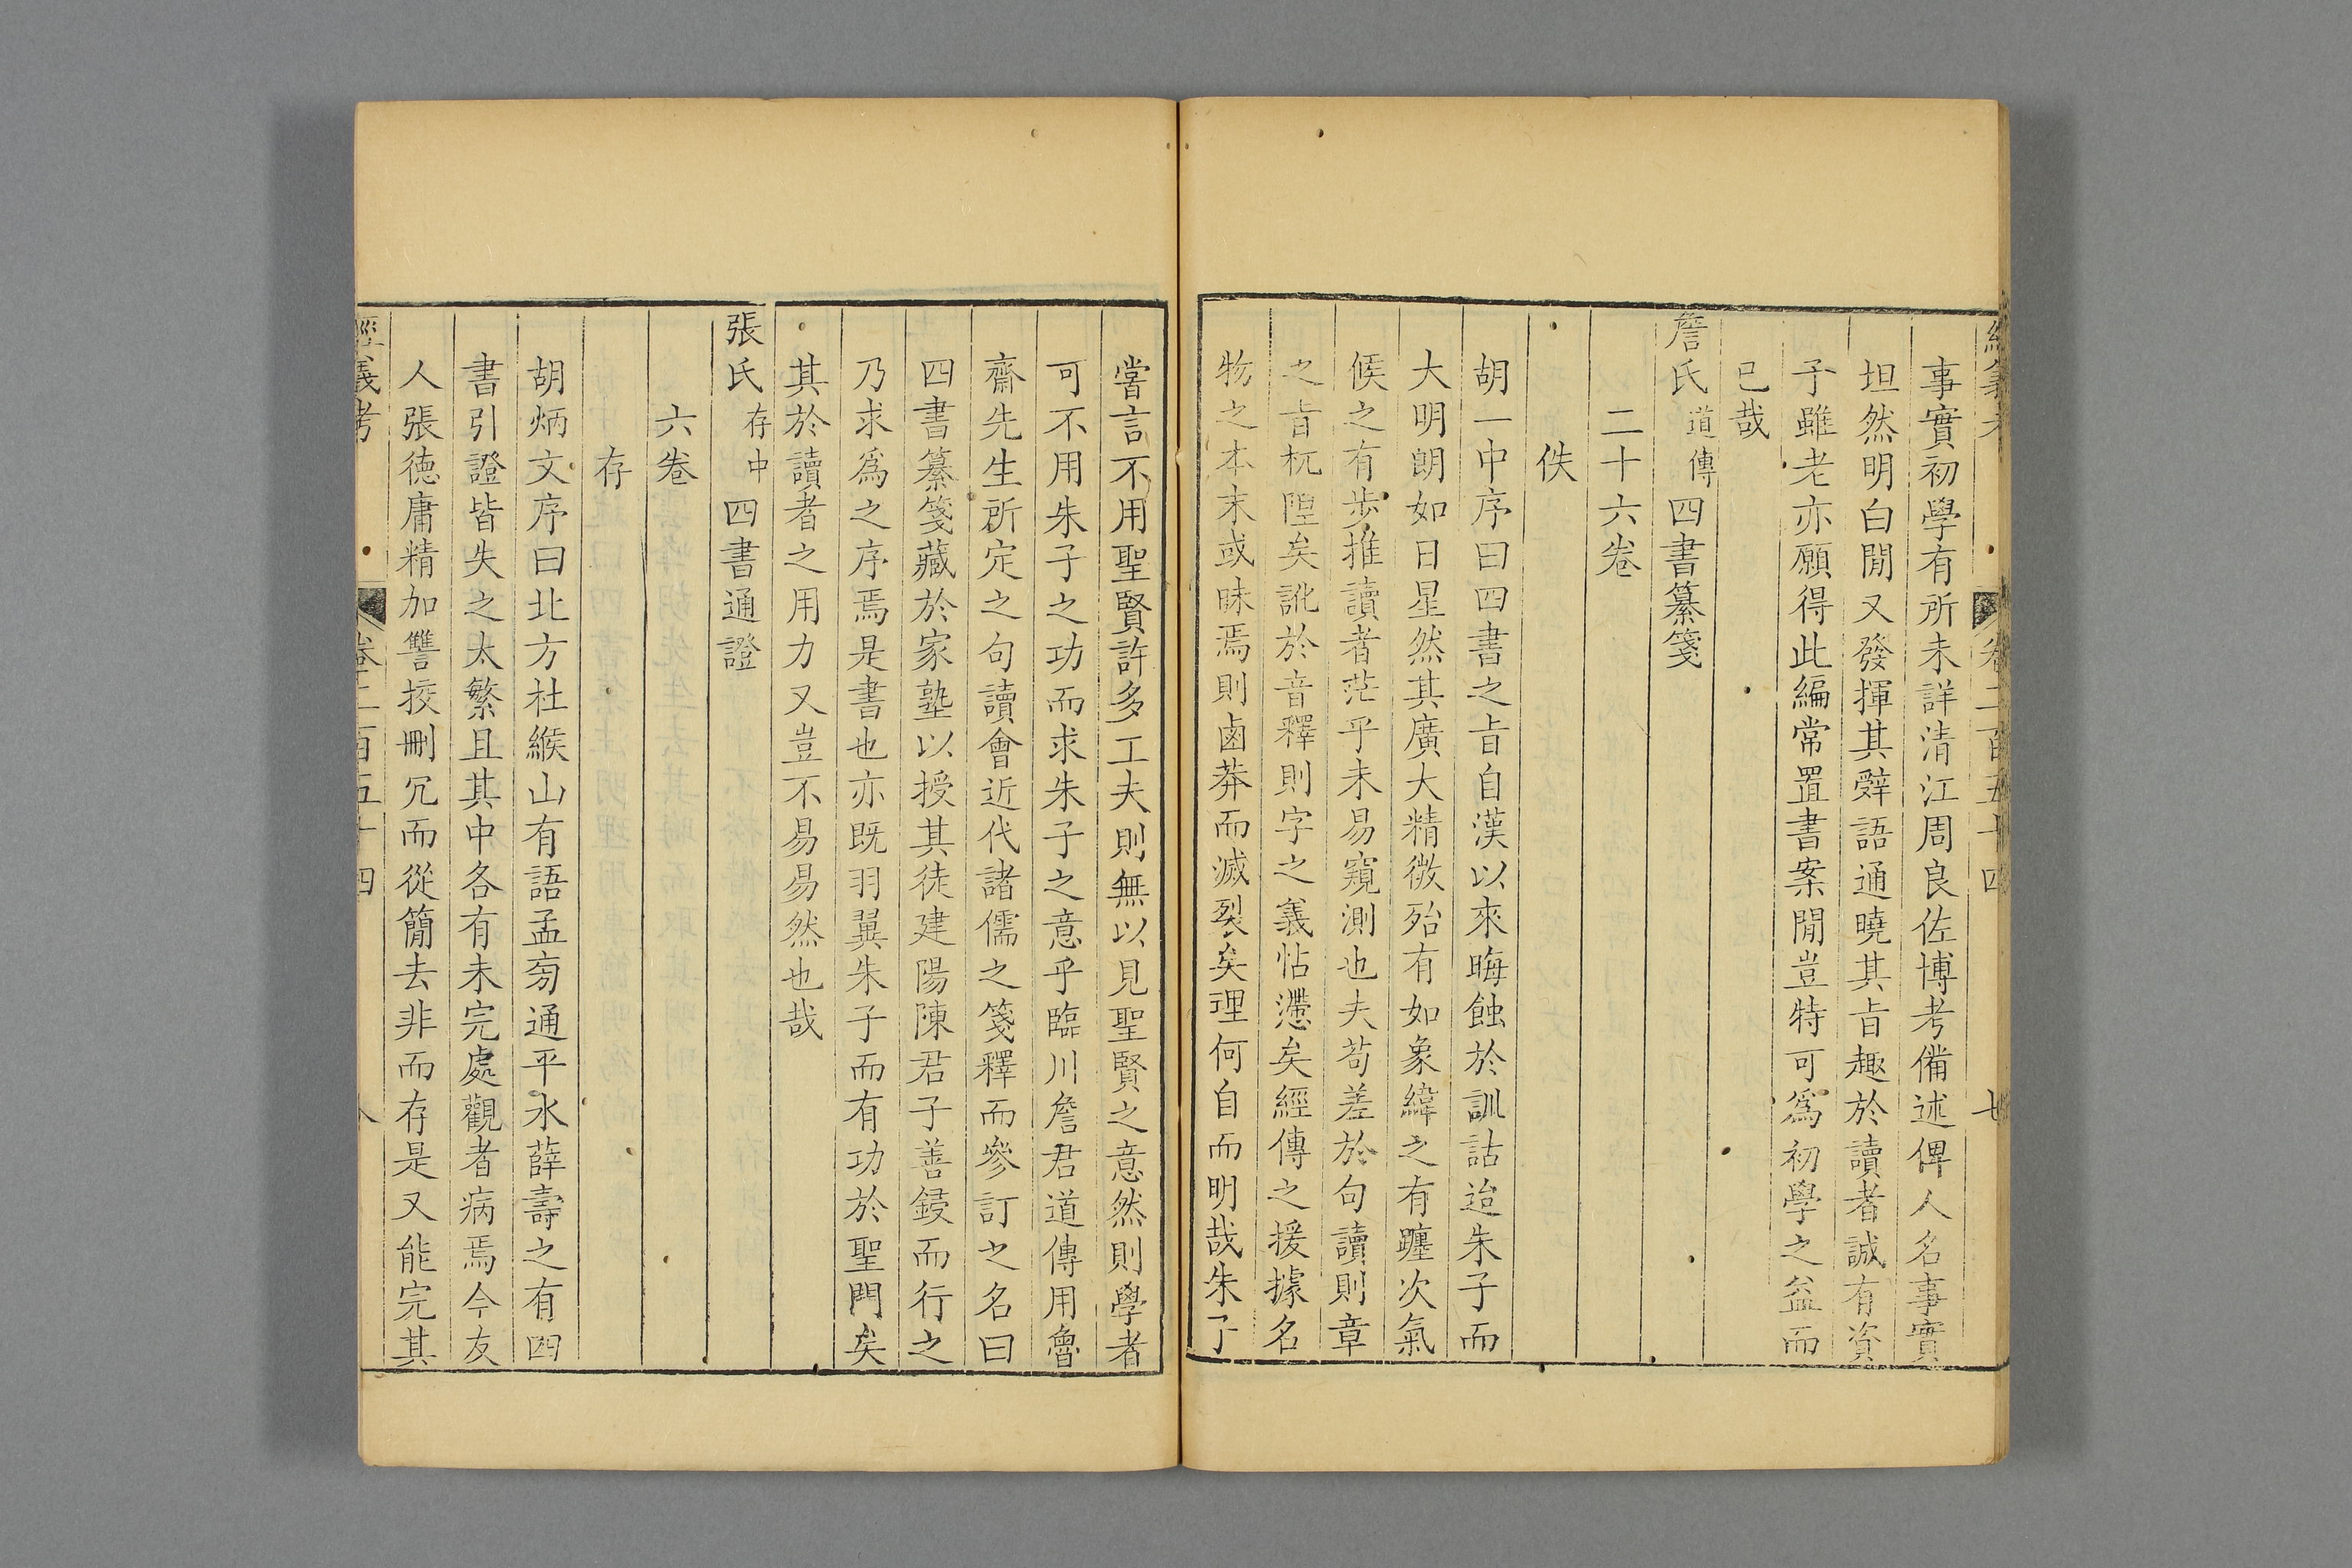 經義考 卷二百五十四 七
事實初學有所未詳清江周良佐博考備述俾人名事實
坦然明白閒又發揮其辭語通曉其旨趣於讀者誠有資
予雖老亦願得此編常置書案閒豈特可爲初學之益而
已哉
詹氏道傳四書纂箋
二十六卷
佚
胡一中序曰四書之旨自漢以來晦蝕於訓詁迨朱子而
大明朗如日星然其廣大精微殆有如象緯之有躔次氣
候之有步推讀者茫乎未易窺測也夫苟差於句讀則章
之旨杌隉矣訛於音釋則字之義怗懘矣經傳之援據名
物之本末或昧焉則鹵莽而滅裂矣理何自而明哉朱子
嘗言不用聖賢許多工夫則無以見聖賢之意然則學者
可不用朱子之功而求朱子之意乎臨川詹君道傳用魯
齋先生所定之句讀會近代諸儒之箋釋而參訂之名曰
四書纂箋藏於家塾以授其徒建陽陳君子善鋟而行之
乃求爲之序焉是書也亦既羽翼朱子而有功於聖門矣
其於讀者之用力又豈不易易然也哉
張氏存中四書通證
六卷
存
胡炳文序曰北方杜緱山有語孟旁通平水薛壽之有四
書引證皆失之太繁且其中各有未完處觀者病焉今友
人張德庸精加讐挍刪冗而從簡去非而存是又能完其
經義考 卷二百五十四 八